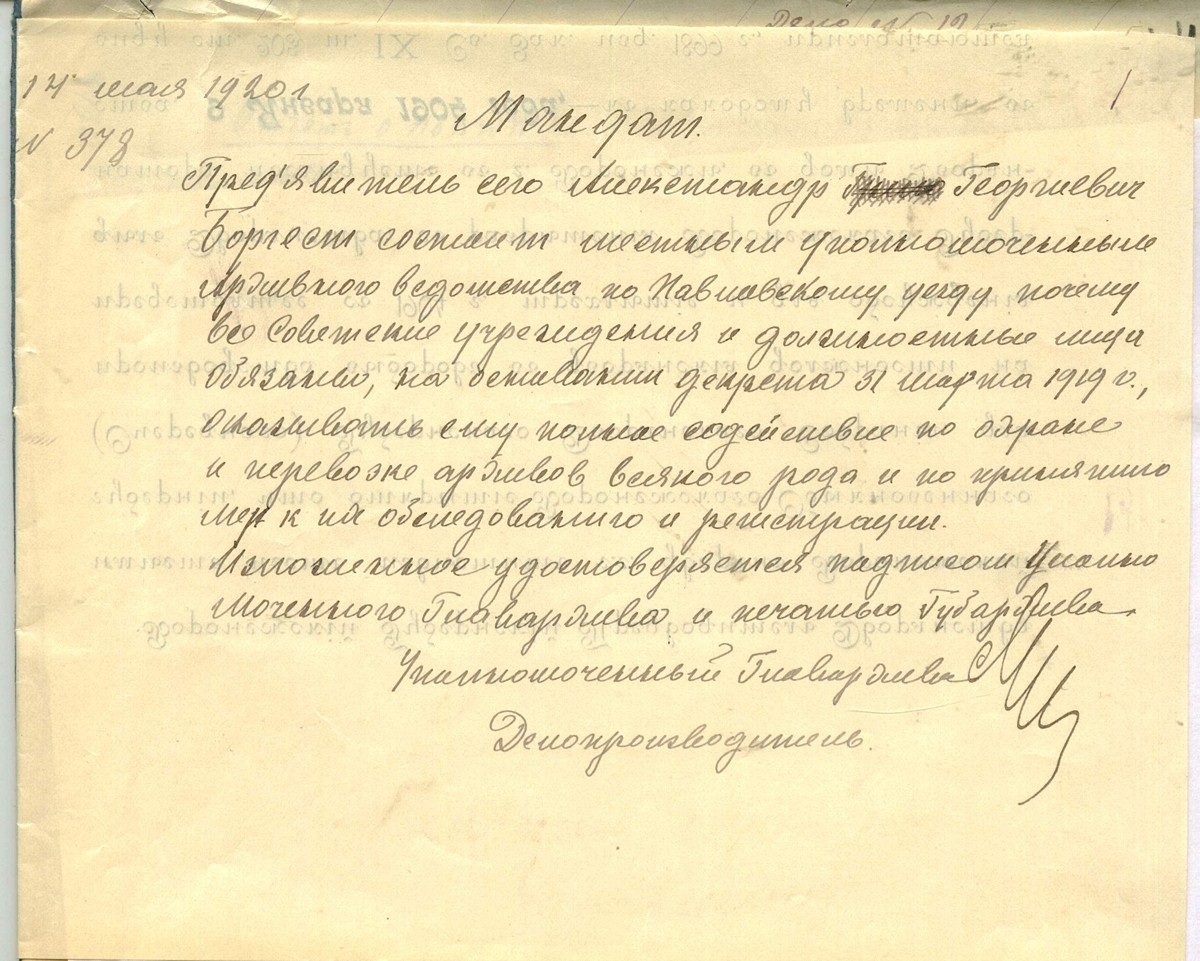 Дело № 12
14 мая 1920 г
1
№ 378
Мандат.
Пред'явитель сего Александр Георгиевич
Боргест состоит местным уполномоченным
Архивного ведомства по уезду почему
все Советские учреждения и должностные лица
обязаны, на основании декрета 31 марта 1919 г.,
оказывать ему полное содействие по охране
и перевозке архивов всякого рода и по принятию
мер к их обследованию и регистрации.
Изложенное удостоверяется подписом Уполно
моченного Главархива и печатью Губархива.
Уполномоченный Главархива
Делопроизводитель.